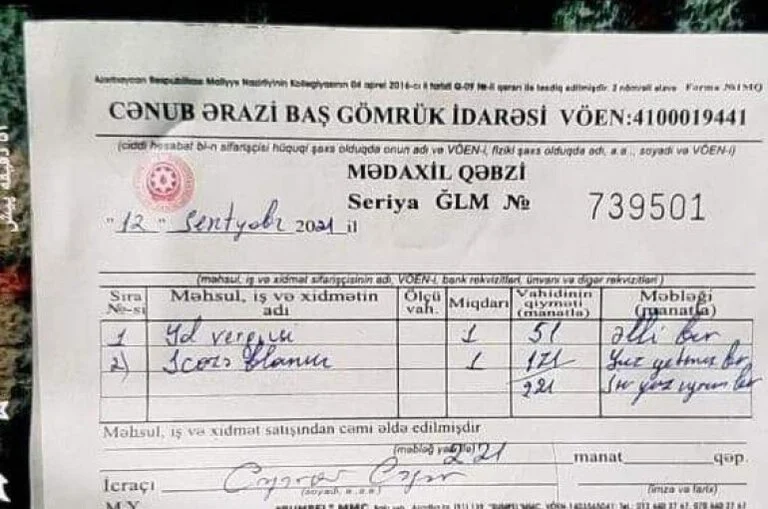 Azərbaycan Respublikası Maliyyə Nazirliyinin Kollegiyasının 04 aprel 2016-cı il tarixli Q-09 №-li qərarı ilə təsdiq edilmişdir. 2 nömrəli əlavə Forma №1MQ
CƏNUB ƏRAZİ BAŞ GÖMRÜK İDARƏSİ VÖEN:4100019441
(ciddi hesabat bl-n sifarişçisi hüquqi şəxs olduqda onun adı və VÖEN-i, fiziki şəxs olduqda adı, a.a., soyadı və VÖEN-i)
MƏDAXİL QƏBZİ
Seriya ĞLM № 739501
"12" sentyabr 2021 il
(məhsul, iş və xidmət sifarişçisinin adı, VÖEN-i, bank rekvizitləri, ünvanı və digər rekvizitləri)
Sıra №-si Məhsul, iş və xidmətin adı Ölçü vah. Miqdarı Vahidinin qiyməti (manatla) Məbləği (manatla)
1 Yol vergisi 1 51 Əlli bir
2) İcazə blankı 1 171 Yüz yetmiş bir
221
Məhsul, iş və xidmət satışından cəmi əldə edilmişdir
221 manat qəp.
İcraçı
(soyadı, a.a.a) (imza və tarix)
M.Y.